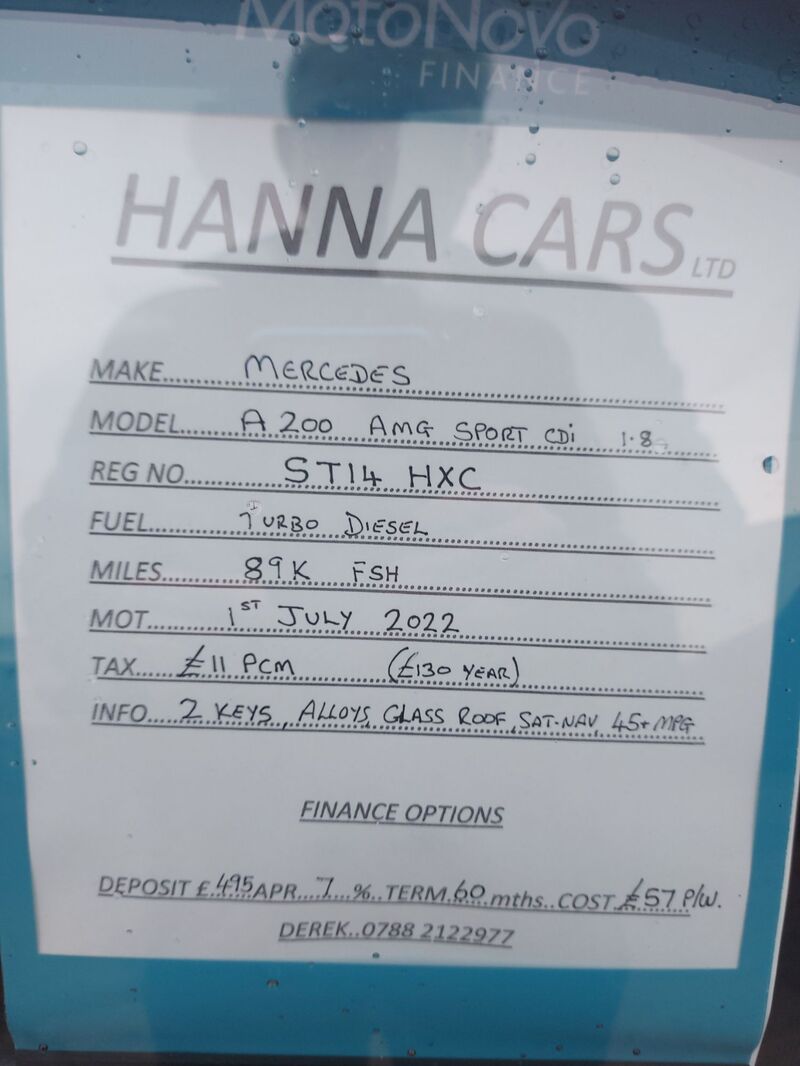 MotoNovo
FINANCE
HANNA CARS LTD
MAKE..... MERCEDES
MODEL..... A 200 AMG SPORT CDi 1.8
REG NO..... ST14 HXC
FUEL..... TURBO DIESEL
MILES..... 89K FSH
MOT..... 1ST JULY 2022
TAX..... £11 PCM (£130 YEAR)
INFO.... 2 KEYS, ALLOYS, GLASS ROOF, SAT-NAV, 45+ MPG
FINANCE OPTIONS
DEPOSIT £.495 APR...7...%..TERM.60.mths..COST.£57 P/W.
DEREK..0788 2122977